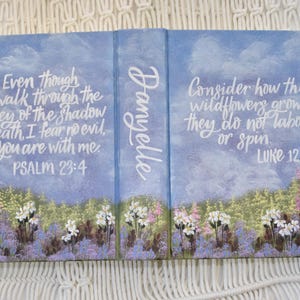 Even though
walk through the
ey of the shadow
eath, I fear no evil,
you are with me.
PSALM 23:4
Danyelle
Consider how the
wildflowers grow
they do not labo
or spin.
LUKE 12